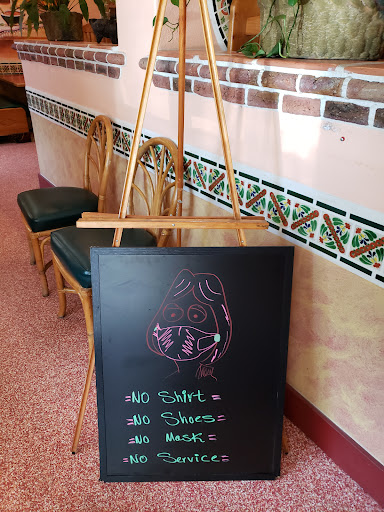 =No Shirt=
=No Shoes=
=No Mask=
=No Service=